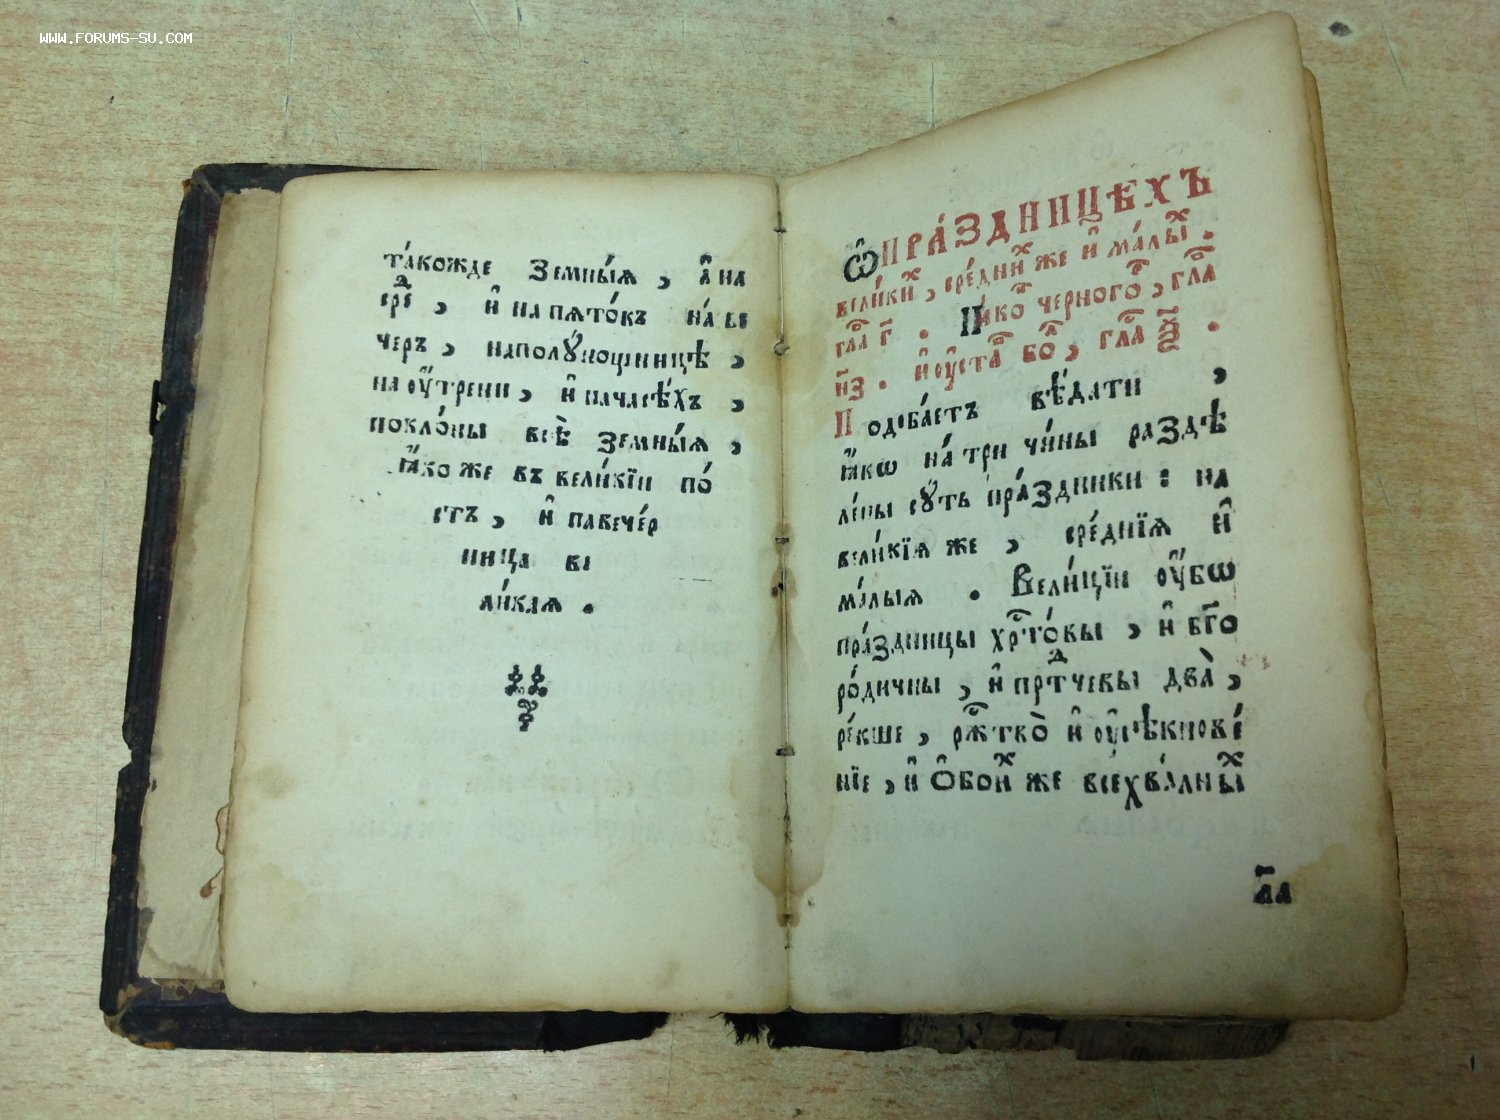 WWW.FORUMS-SU.COM
та́кожде земны́ѧ , а҆ на
срⷣе҄ , и҆ на пѧто́къ на́ ве
черъ , наполꙋ́нощницѣ ,
на оу҆́трени , и҆ на часѣ́хъ ,
покло́ны всѣ̀ земны́ѧ ,
ꙗ҆́ко же въ вели́кїи по́
стъ , и҆ павече́р
ница ве
ли́каѧ .
ѽ пра́здницѣхъ
вели́киⷯ , сре́дниⷯ же и҆ ма́лыⷯ .
гла҃ г҃ . Ни́коⷩ҇ черного҃ , гла҃
н҃з . и҆ оу҆ста҃в
Подоба́етъ вѣ́дати ,
ꙗ҆́кѡ на́ три чи́ны раздѣ
ле́ны сꙋ́ть пра́здники : на
вели́кїѧ же , сре́днїѧ и҆
ма́лыѧ . Вели́цїи оу҆́бѡ
пра́здницы хрⷭ҇то́вы , и҆ бг҃о
ро́дичны , и҆ прⷣт҃чевы два̀ ,
ре́кше , рж҃тво̀ и҆ оу҆сѣкнове́
нїе , и҆ ѻ҆бои́ⷯ же всехва́лныⷯ
л҃а